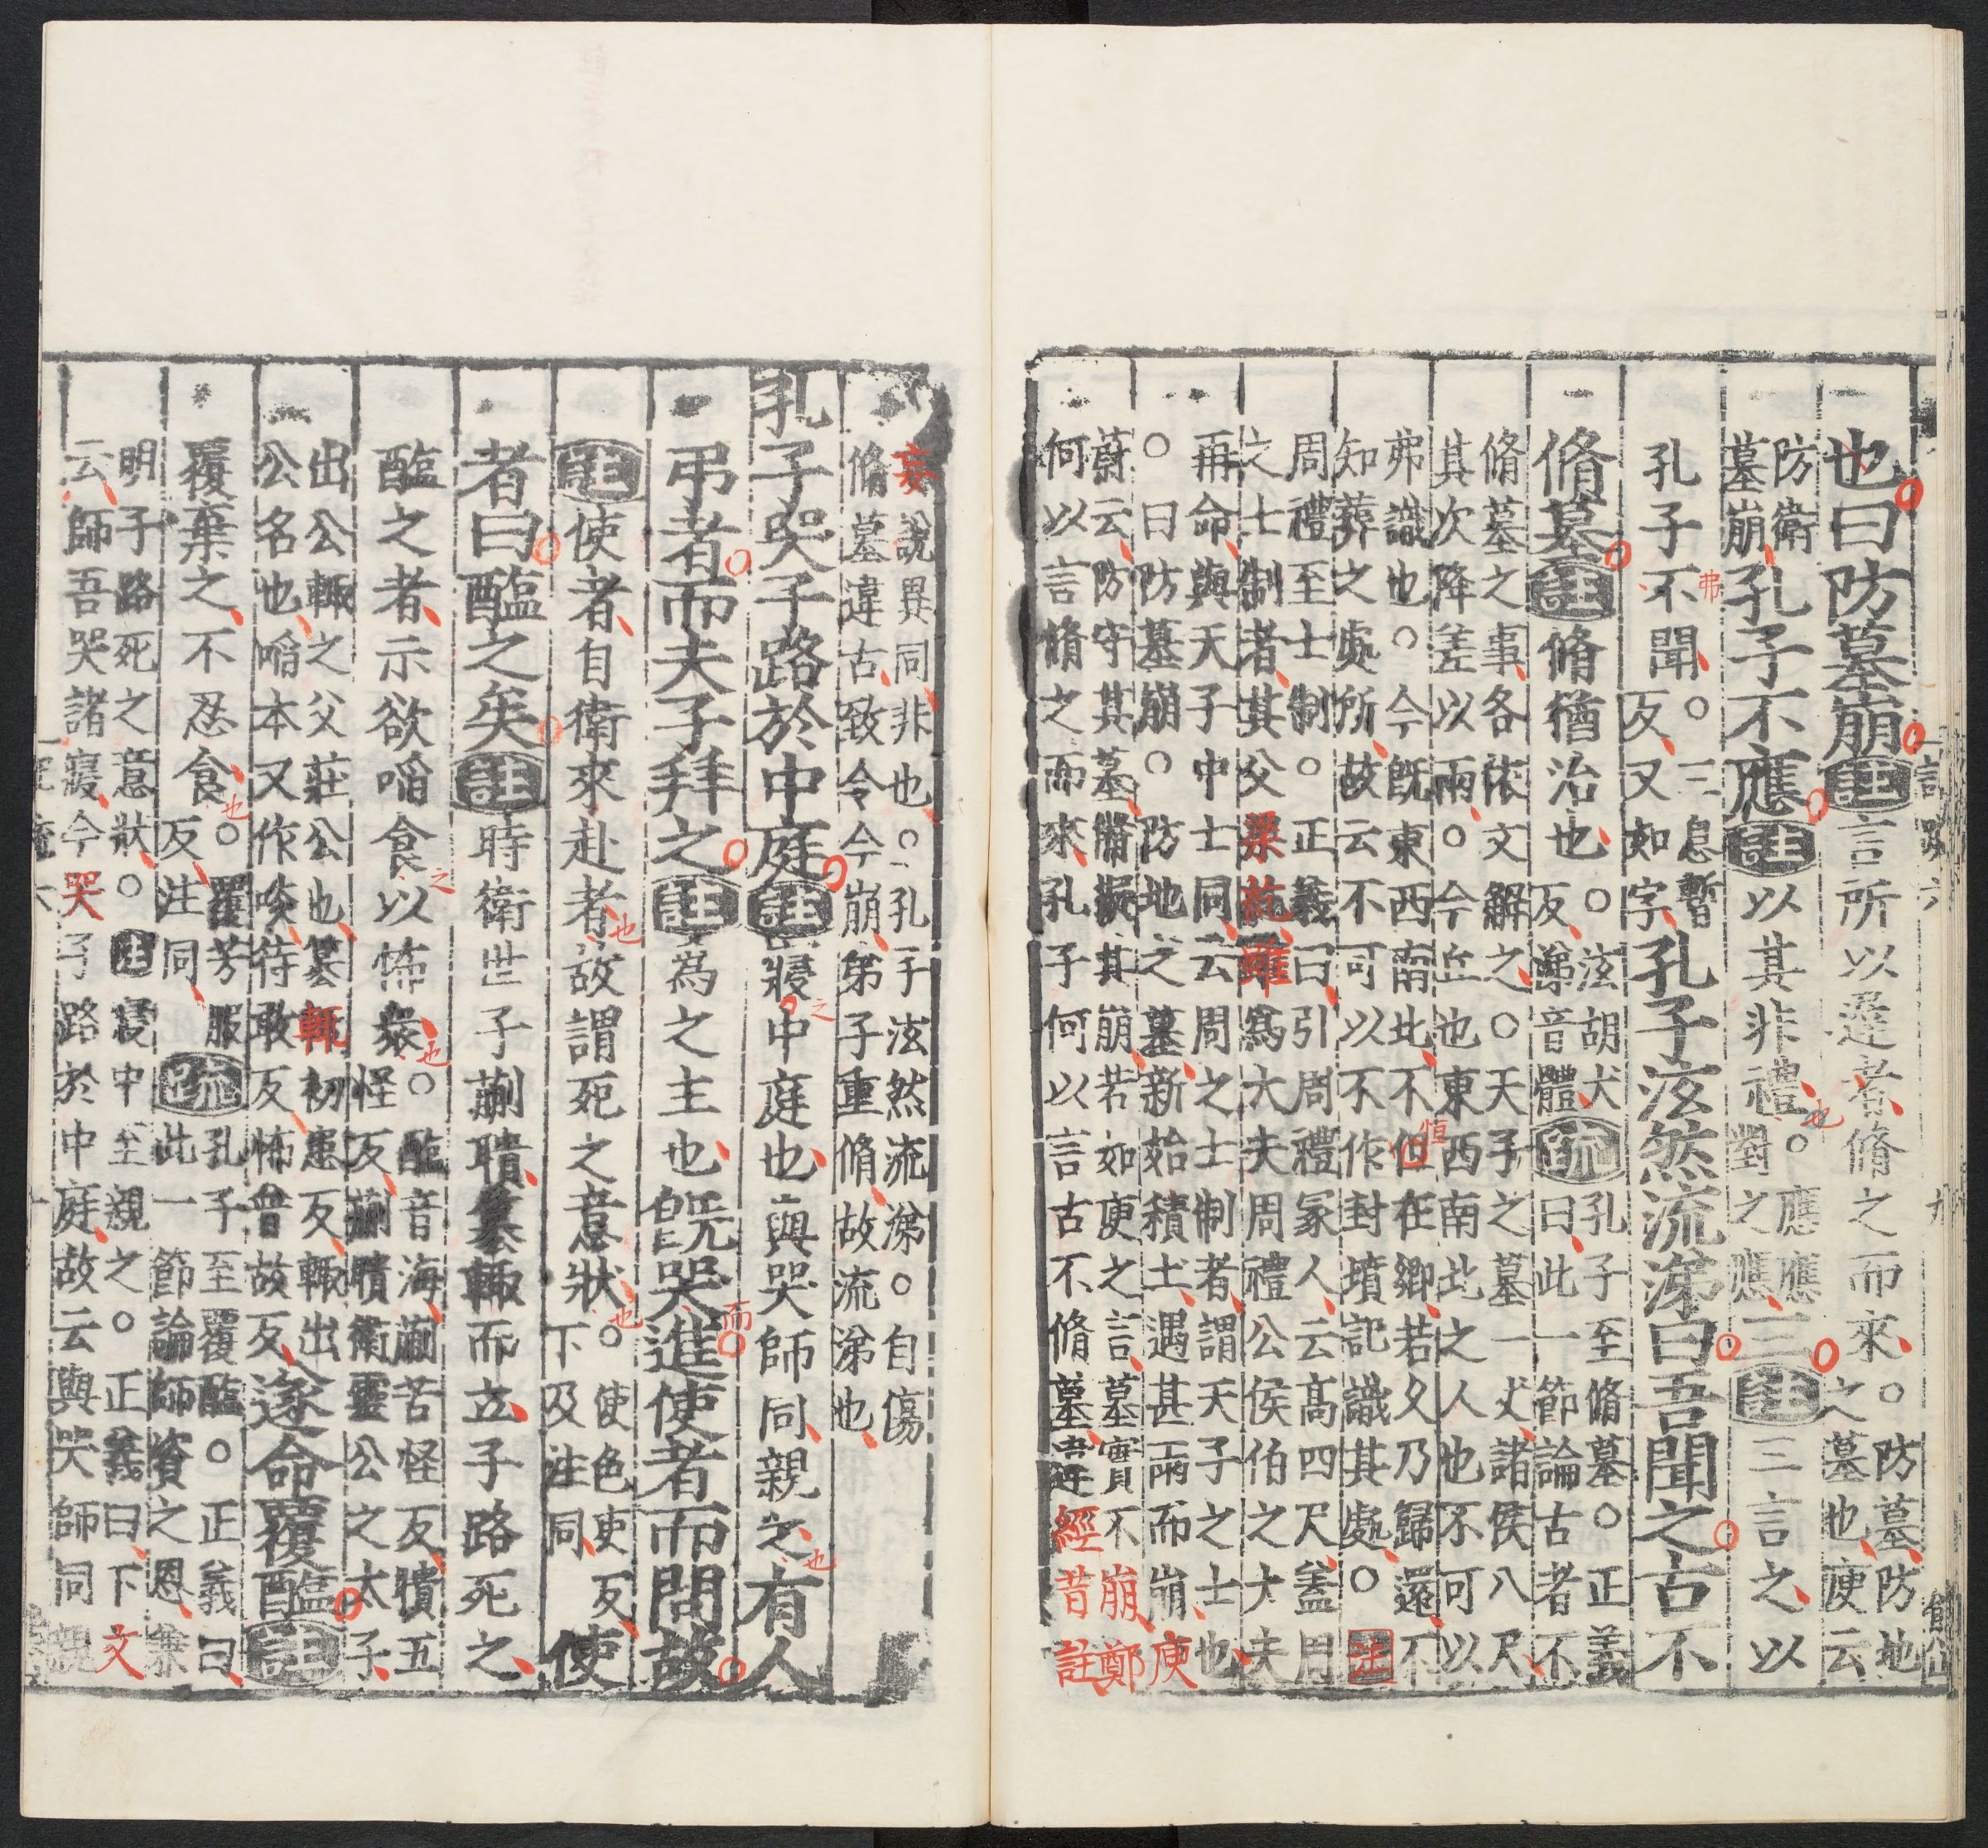 也曰防墓崩註言所以遟者脩之而來○防墓防地之墓也庾云
防衛墓崩孔子不應註以其非禮也○應應對之應三註三言之以
孔子不聞弗○三息暫反又如字孔子泫然流涕曰吾聞之古不
脩墓註脩猶治也○泫胡犬反涕音體疏孔子至脩墓○正義曰此一節論古者不
脩墓之事各依文解之○天子之墓一丈諸侯八尺
其次降差以兩○今丘也東西南北之人也不可以
弗識也○今旣東西南北不但恒在鄉若久乃歸還不
知葬之處所故云不可以不作封墳記識其處○注
周禮至士制○正義曰引周禮冢人云高四尺蓋周
之士制者其父梁紇雖爲大夫周禮公侯伯之大夫
再命與天子中士同云周之士制者謂天子之士也
○曰防墓崩○防地之墓新始積土遇甚雨而崩庾
蔚云防守其墓備擬其崩若如庾之言墓實不崩鄭
何以言脩之而來孔子何以言古不脩墓違經昔註
妄說異同非也○孔子泫然流涕○自傷
脩墓違古致令今崩弟子重脩故流涕也
孔子哭子路於中庭註寢之中庭也與哭師同親之也有人
弔者而夫子拜之註爲之主也旣哭而進使者而問故
註使者自衛來赴者也故謂死之意狀也○使色吏反下及注同使
者曰醢之矣註時衛世子蒯聵簒輒而立子路死之
醢之者示欲啗食之以怖衆也○醢音海蒯苦怪反聵五怪反蒯聵衛靈公之太子
出公輒之父莊公也簒輒初患反輒出公名也啗本又作啖待敢反怖普故反遂命覆醢註
覆棄之不忍食也○覆芳服反注同疏孔子至覆醢○正義曰此一節論師資之恩兼
明子路死之意狀○註寢中至親之○正義曰下文
云師吾哭諸寢今哭子路於中庭故云與哭師同親